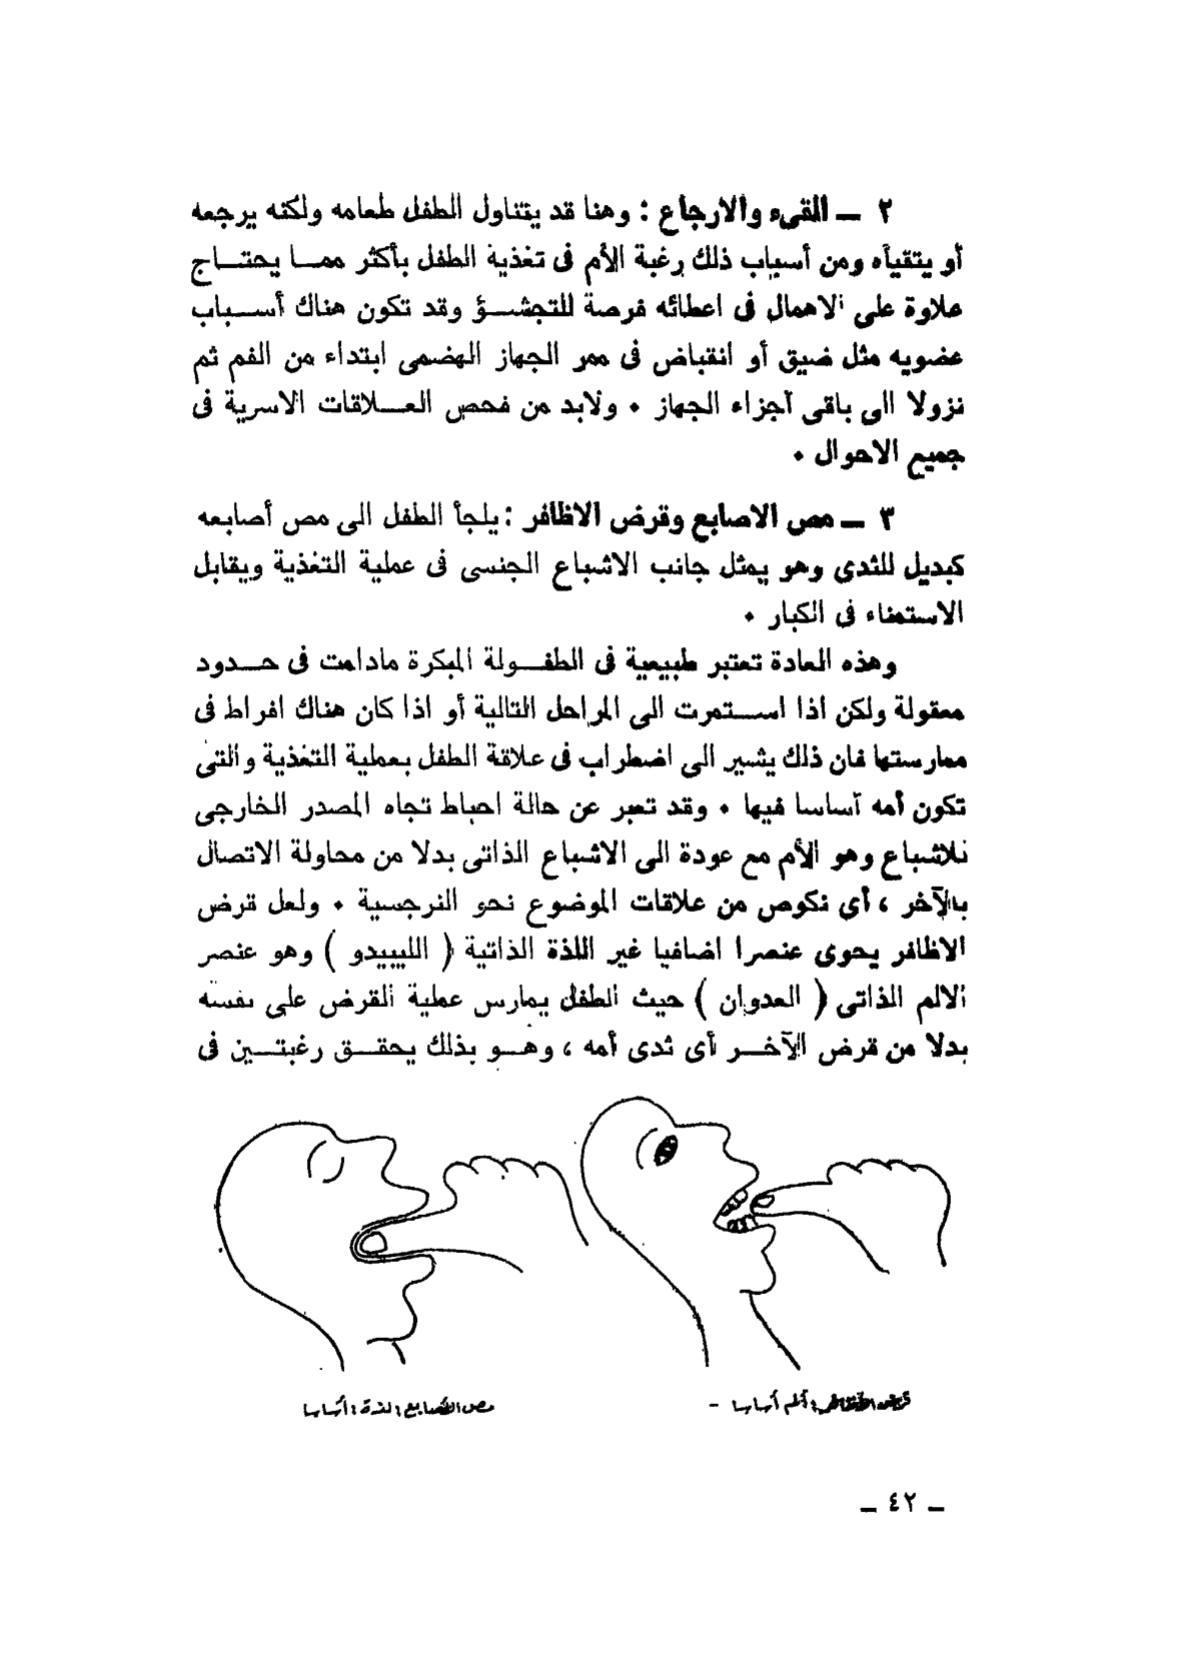 ٢ ــ القىء والارجاع : وهنا قد يتناول الطفل طعامه ولكنه يرجعه
أو يتقيآه ومن أسباب ذلك رغبة الأم فى تغذية الطفل بأكثر ممــا يحتــاج
علاوة على الاهمال فى اعطائه فرصة للتجشــؤ وقد تكون هناك أســباب
عضويه مثل ضيق أو انقباض فى ممر الجهاز الهضمى ابتداء من الفم ثم
نزولا الى باقى آجزاء الجهاز ٠ ولابد من فحص العــلاقات الاسرية فى
جميع الاحوال ٠
٣ ــ مص الاصابع وقرض الاظافر : يلجأ الطفل الى مص أصابعه
كبديل للثدى وهو يمثل جانب الاشباع الجنسى فى عملية التغذية ويقابل
الاستمناء فى الكبار ٠
وهذه العادة تعتبر طبيعية فى الطفــولة المبكرة مادامت فى حــدود
معقولة ولكن اذا اســتمرت الى المراحل التالية أو اذا كان هناك افراط فى
ممارستها فان ذلك يشير الى اضطراب فى علاقة الطفل بعملية التغذية والتى
تكون أمه آساسا فيها ٠ وقد تعبر عن حالة احباط تجاه المصدر الخارجى
للاشباع وهو الأم مع عودة الى الاشباع الذاتى بدلا من محاولة الاتصال
بالآخر ، أى نكوص من علاقات الموضوع نحو النرجسية ٠ ولعل قرض
الاظافر يحوى عنصرا اضافيا غير اللذة الذاتية ( الليبيدو ) وهو عنصر
الالم الذاتى ( العدوان ) حيث الطفل يمارس عملية القرض على نفسه
بدلا من قرض الآخــر أى ثدى أمه ، وهــو بذلك يحقــق رغبتــين فى
قرض الأظافر : ألم أساسا -
مص الأصابع : لذة : أساسا
ــ ٤٢ ــ